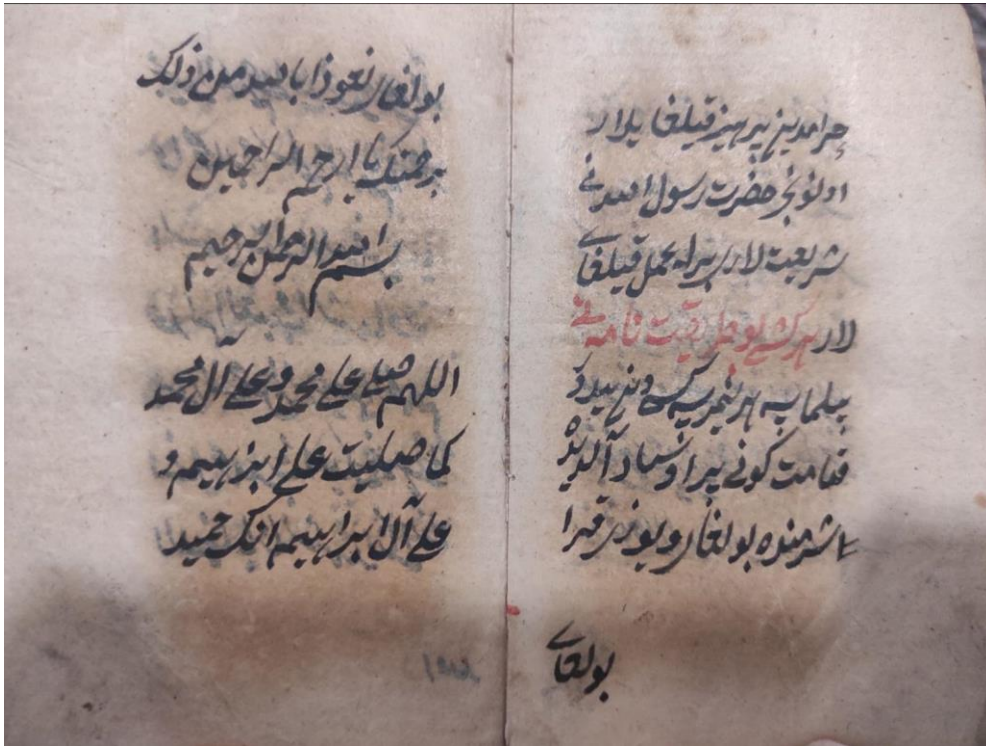 حرامدین پرهیز قیلغایلار
اولونچی حضرت رسول الله نی
شریعت لاری بیراه عمل قیلغای
لار هر کشی بو طریقت نامه نی
بیلماسه هر
قیامت کونی پیر اوستاد آلدیده
شرمنده بولغای و یوزی قرا
بولغای
بولغای نعوذا بالله من ذلک
برحمتک یا ارحم الراحمین
بسم الله الرحمن الرحیم
اللهم صلی علی محمد و علی آل محمد
کما صلیت علی ابراهیم و
علی آل ابراهیم انک حمید